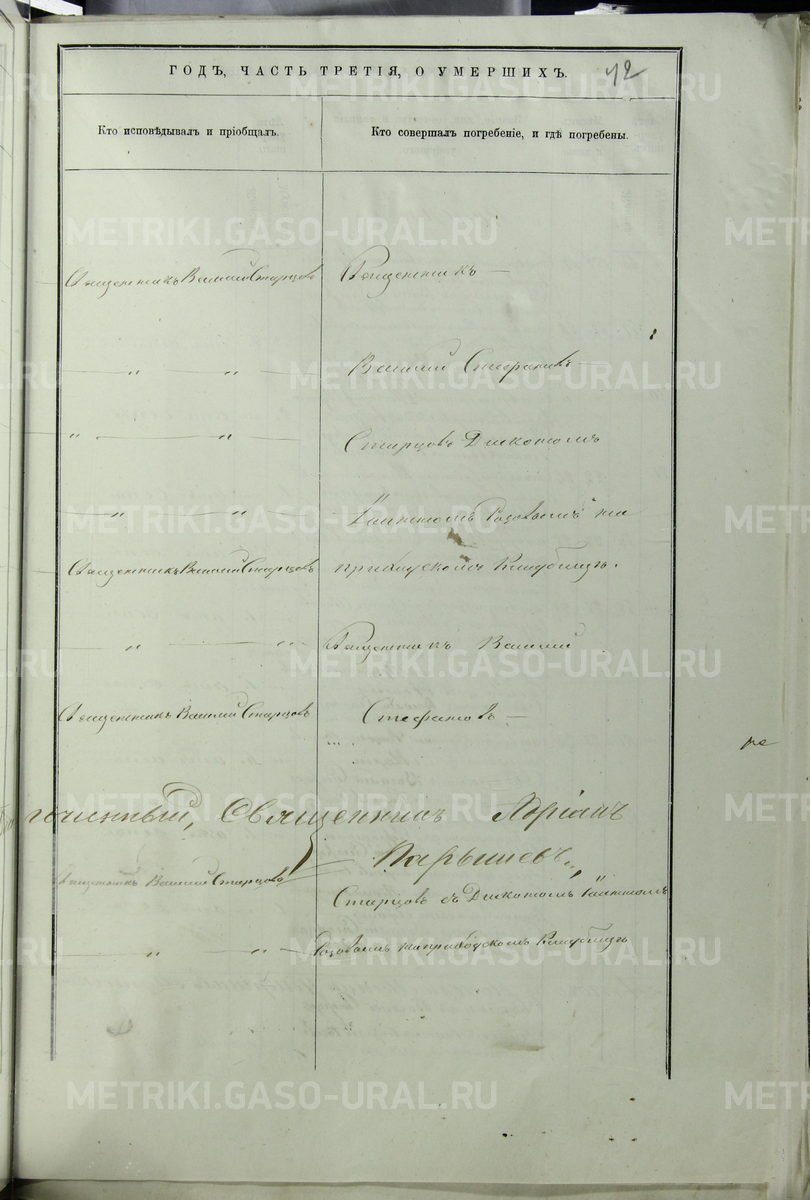 ГОДЪ, ЧАСТЬ ТРЕТІЯ, О УМЕРШИХЪ. 42
Кто исповѣдывалъ и пріобщалъ.
Кто совершалъ погребеніе, и гдѣ погребены.
Священникъ Василій Старцовъ
Священникъ
" "
Василій Стефановъ
" "
Старцовъ Дьякономъ
" "
на
Священникъ Василій Старцовъ
приходскомъ кладбищѣ.
" "
Священникъ Василій
Священникъ Василій Старцовъ
Стефановъ
Священникъ Адріанъ
Священникъ Василій Старцовъ
Старцовъ съ Дьякономъ
" "
на приходскомъ кладбищѣ
METRIKI.GASO-URAL.RU